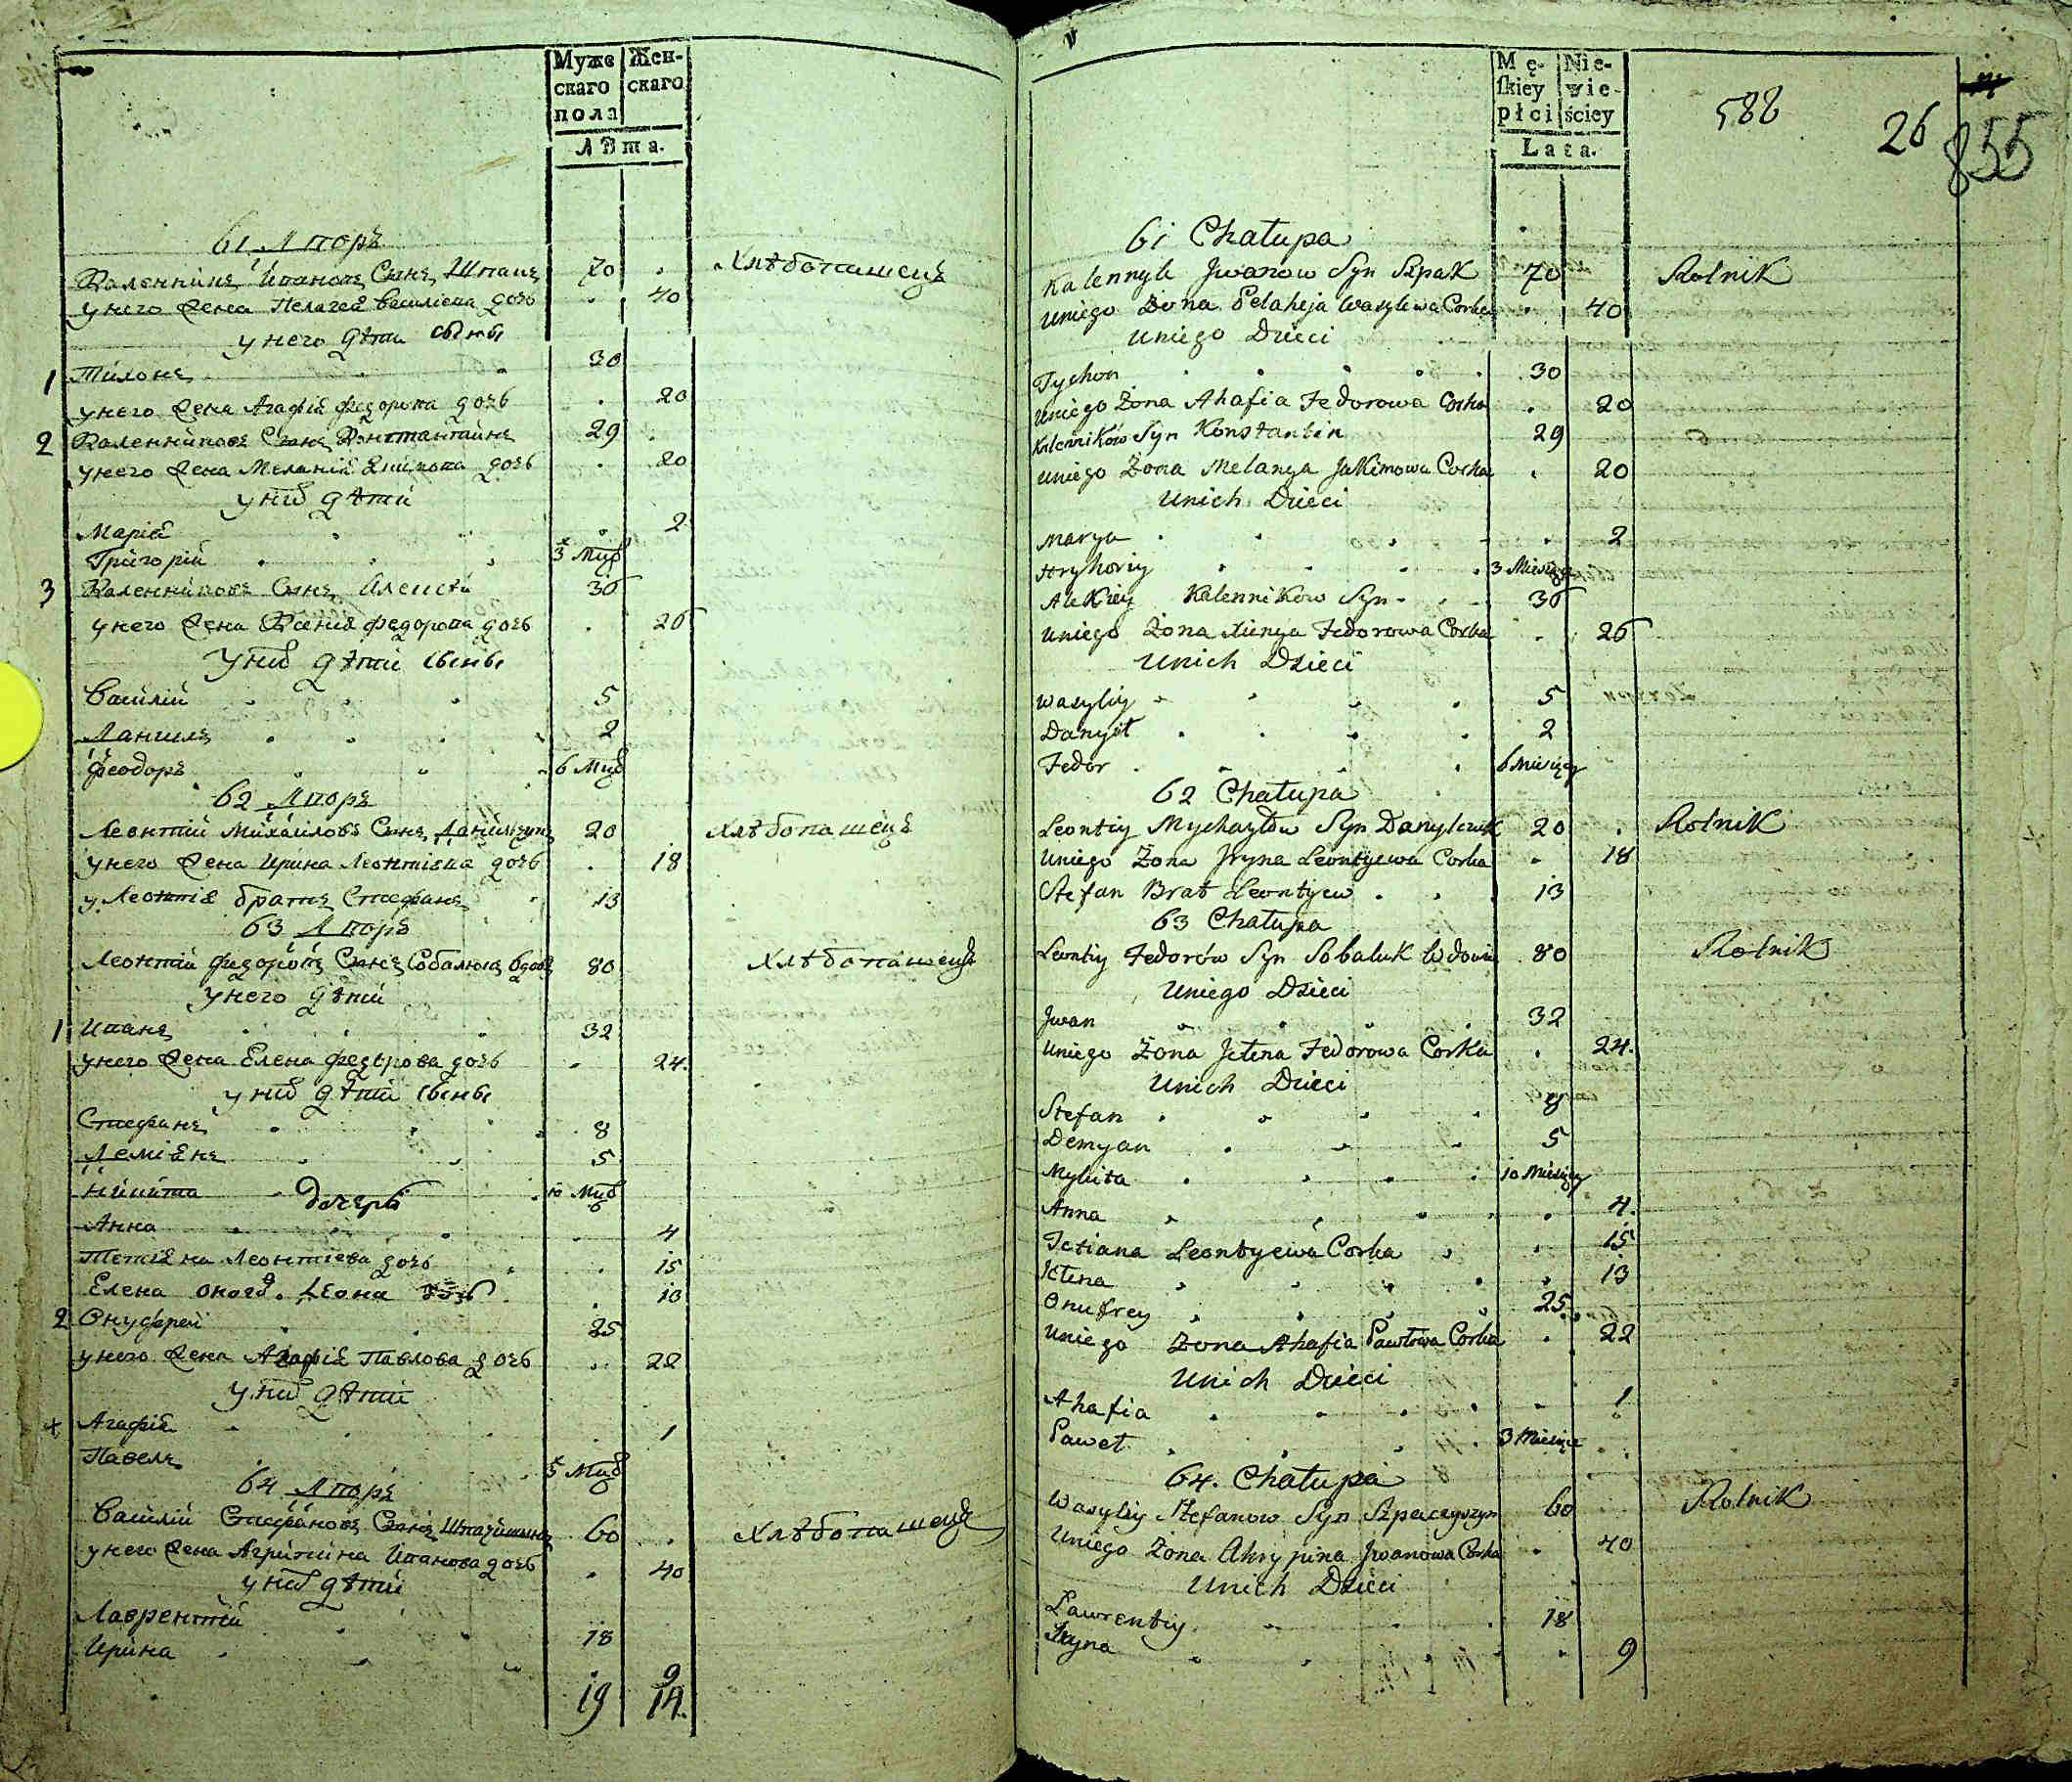 Муже
скаго
пола
Жен-
скаго
Лѣта.
61 Дворъ
Каленникъ Ивановъ Сынъ Шпакъ 70 Хлѣбопашецъ
у него Жена Пелагея Василіева дочь 40
у него дѣти сыны
1 Тихонъ 30
у него Жена Агафія Федорова дочь 20
2 Каленниковъ Сынъ Константинъ 29
у него Жена Меланія Якимова дочь 20
у них дѣти
Марія 2
Григорій 3 Мцѣ
3 Каленниковъ Сынъ Алексѣй 36
у него Жена Ксенія Федорова дочь 26
У них дѣти сыны
Василій 5
Данилъ 2
Феодоръ 6 Мцѣ
62 Дворъ
Леонтій Михайловъ Сынъ Данильчукъ 20 Хлѣбопашецъ
у него Жена Ирина Леонтіева дочь 18
у Леонтія братъ Стефанъ 13
63 Дворъ
Леонтій Федоровъ Сынъ Собалюкъ вдовъ 80 Хлѣбопашецъ
У него дѣти
1 Иванъ 32
у него Жена Елена Федорова дочь 24.
у них дѣти сыны
Стефанъ 8
Деміянъ 5
Никита 10 Мцѣ
дочерь
Анна 4
Тетіяна Леонтіева дочь 15
Елена 13
2 Онуфрей 25
у него Жена Агафія Павлова дочь 22
У них дѣти
x Агафія 1
Павелъ 3 Мцѣ
64 Дворъ
Василій Стефановъ Сынъ Шпачишинъ 60 Хлѣбопашецъ
у него Жена Агрипина Иванова дочь 40
у них дѣти
Лаврентій 18
Ирина 9
19 14.
Mę-
skiey
płci
Nie-
wie-
ściey
Lata.
588
26
855
61 Chałupa
Kalennyk Jwanow Syn Szpak 70 Rolnik
Uniego Żona Pelaheja Wasylewa Corka 40
Uniego Dzieci
Tychon 30
Uniego Żona Ahafia Fedorowa Corka 20
Kalenników Syn Konstantin 29
Uniego Żona Melanya Jakimowa Corka 20
Unich Dzieci
Marya 2
Hryhoriy 3 Miesięcy
Alexiey Kalenników Syn 36
Uniego Żona Xienya Fedorowa Corka 26
Unich Dzieci
Wasyliy 5
Danyił 2
Fedor 6 Miesięcy
62 Chałupa
Leontiy Mychayłów Syn Danylczuk 20 Rolnik
Uniego Żona Jryna Leontyewa Corka 18
Stefan Brat Leontyew 13
63 Chałupa
Leontiy Fedorów Syn Sobaluk Wdowiec 80 Rolnik
Uniego Dzieci
Jwan 32
Uniego Żona Jełena Fedorowa Corka 24.
Unich Dzieci
Stefan 8
Demyan 5
Mykita 10 Miesięcy
Anna 4.
Tetiana Leontyewa Corka 15
Jełena 13
Onufrey 25
Uniego Żona Ahafia Pawłowa Corka 22
Unich Dzieci
Ahafia 1
Paweł 3 Miesięce
64. Chałupa
Wasyliy Stefanow Syn Szpaczyszyn 60 Rolnik
Uniego Żona Ahrypina Jwanowa Corka 40
Unich Dzieci
Lawrentiy 18
Jryna 9